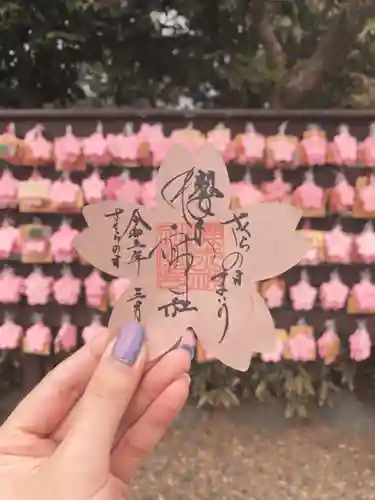 さくらのまいり
櫻木神社
令和三年三月
さくらの日